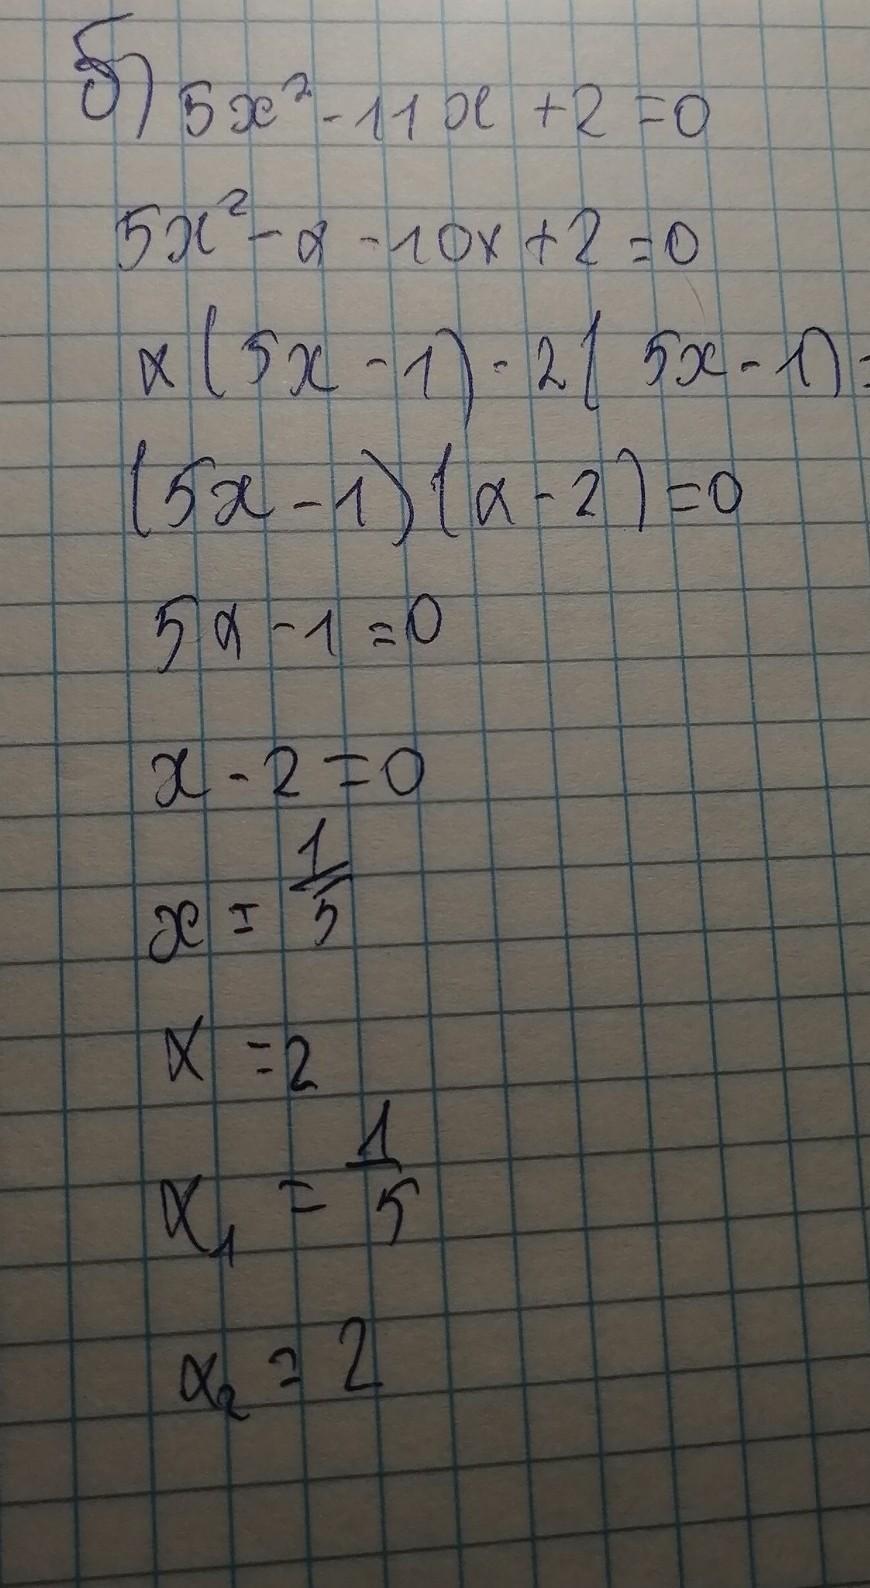 б) 5x² - 11x + 2 = 0
5x² - x - 10x + 2 = 0
x(5x - 1) - 2(5x - 1) =
(5x - 1)(x - 2) = 0
5x - 1 = 0
x - 2 = 0
x = 1/5
x = 2
x₁ = 1/5
x₂ = 2